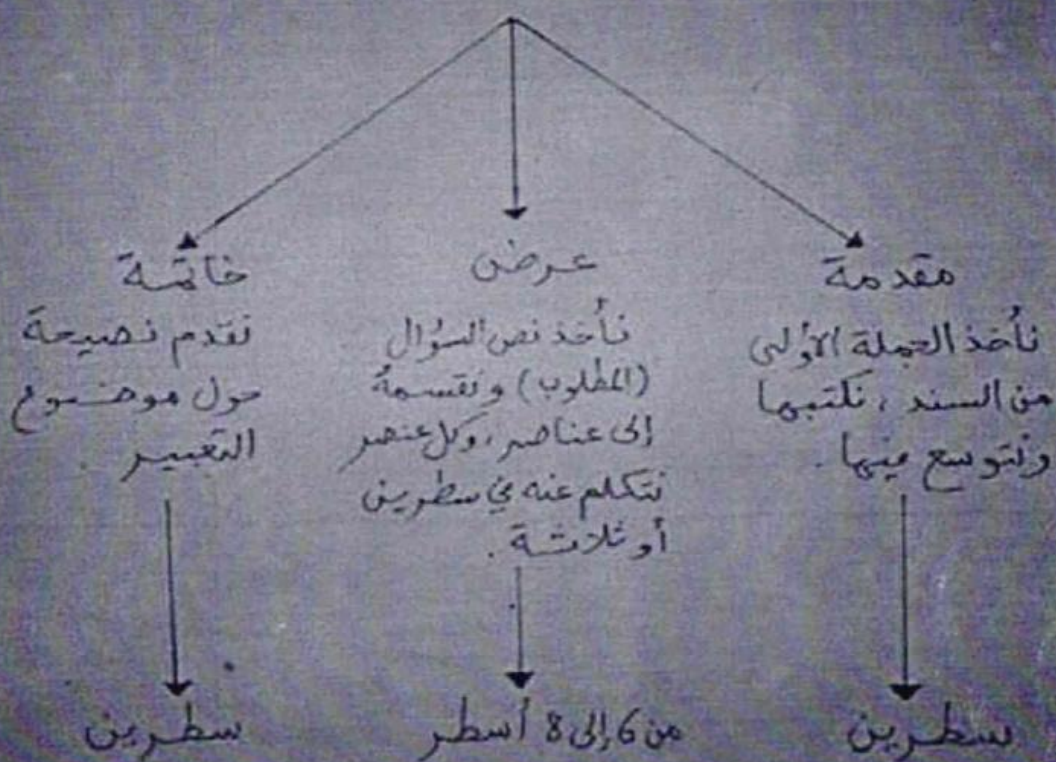 مقدمة
نأخذ الجملة الأولى
من السند، نكتبها
ونتوسع فيها.
سطرين
عرض
نأخذ نص السؤال
(المطلوب) ونقسمه
إلى عناصر، وكل عنصر
نتكلم عنه في سطرين
أو ثلاثة.
من 6 إلى 8 أسطر
خاتمة
نقدم نصيحة
حول موضوع
التعبير.
سطرين